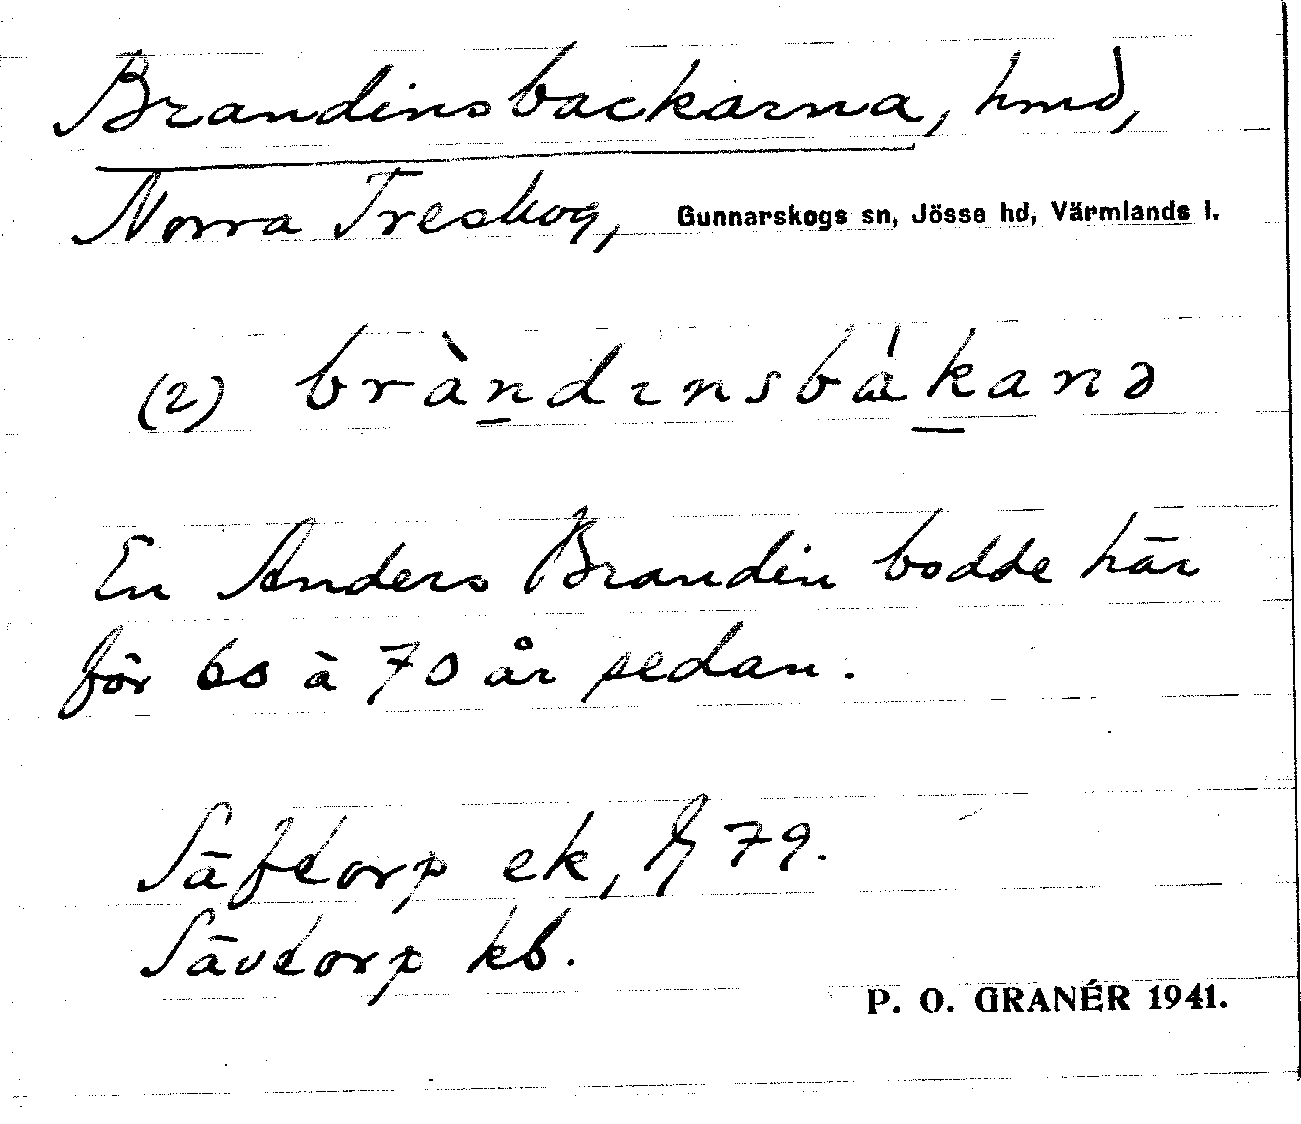 Brandinsbackarna, hmd,
Norra Treskog, Gunnarskogs sn, Jösse hd, Värmlands l.
(2) bràndɩnsbákanə
En Anders Brandin bodde här
för 60 à 70 år sedan.
Säftorp ek, 79.
Sävtorp kb.
P. O. GRANÉR 1941.